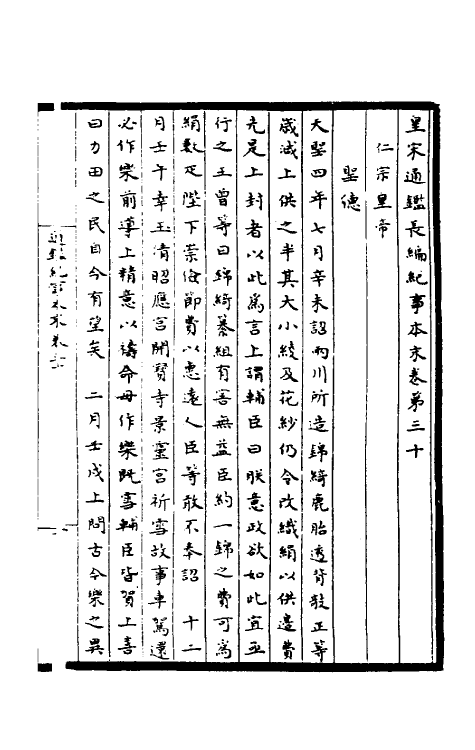 皇宋通鑑長編紀事本末卷第三十
仁宗皇帝
聖德
天聖四年七月辛未詔兩川所造錦綺鹿胎透背欹正等
歲減上供之半其大小綾及花紗仍令改織絹以供邊費
先是上封者以此為言上謂輔臣曰朕意政欲如此宜亟
行之王曾等曰錦綺纂組有害無益臣約一錦之費可為
絹數疋陛下崇儉節費以惠遠人臣等敢不奉詔　十二
月壬午幸玉清昭應宮開寶寺景靈宮祈雪故事車駕還
必作樂前導上精意以禱命毋作樂既雪輔臣皆賀上喜
曰力田之民自今有望矣　二月壬戌上問古今樂之異
通鑑紀事本末卷三十
一